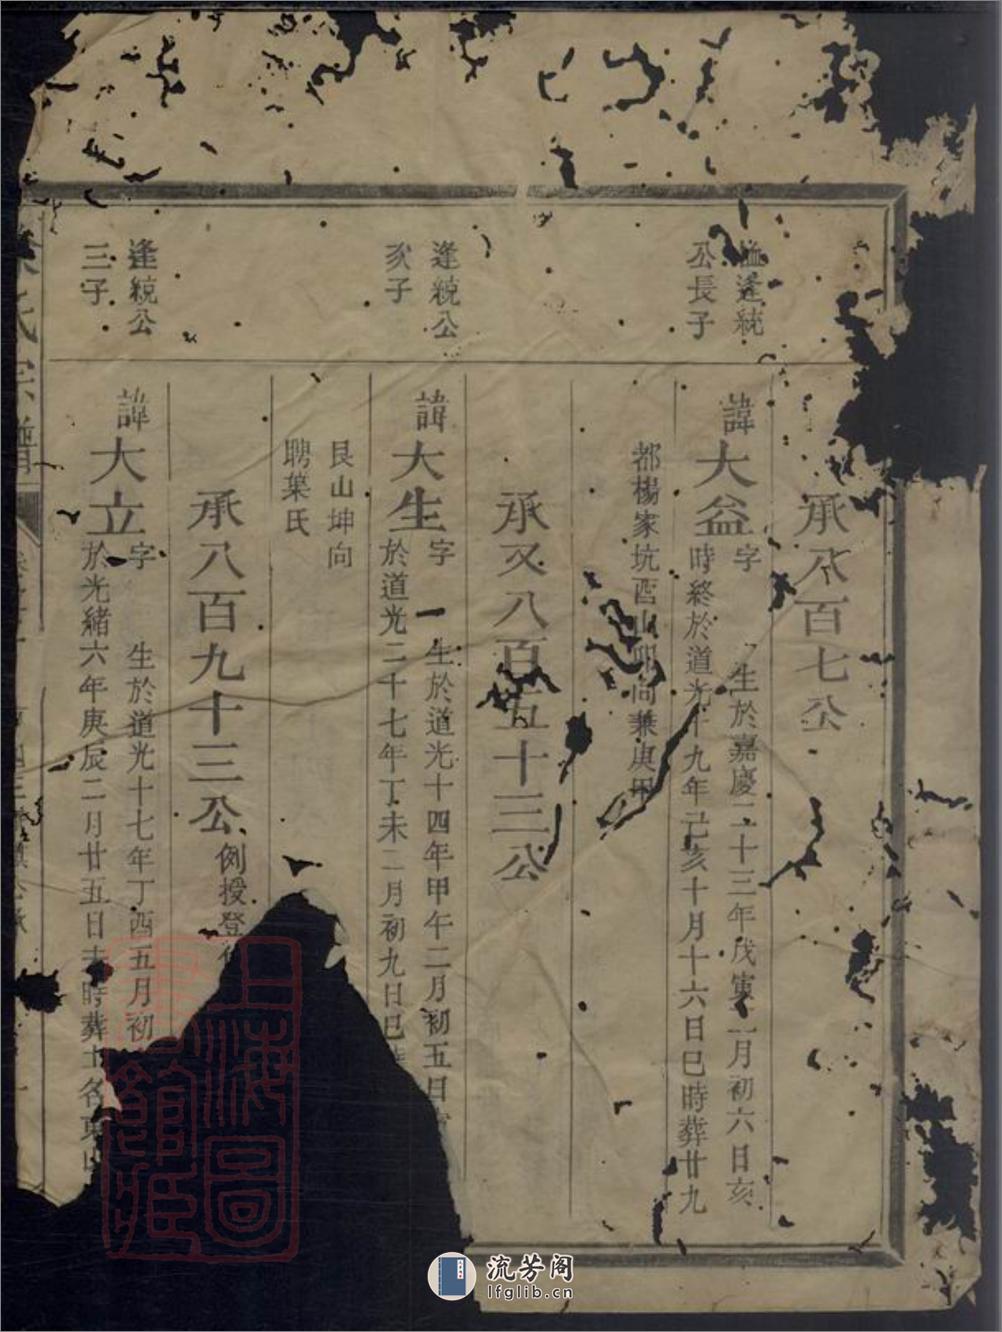 承八百七公
逢統
公長子
諱大益字
生於嘉慶二十三年戊寅二月初六日亥
時終於道光十九年己亥十月十六日巳時葬廿九
都楊家坑酉山卯向兼庚甲
承又八百五十三公
逢統公
次子
諱大生字
生於道光十四年甲午二月初五日
於道光二十七年丁未二月初九日巳
艮山坤向
聘葉氏
承八百九十三公
例授登
逢統公
三子
諱大立字
生於道光十七年丁酉五月初
於光緒六年庚辰二月廿五日未時葬土名
氏宗譜
上海圖書館藏
流芳阁
lfglib.cn